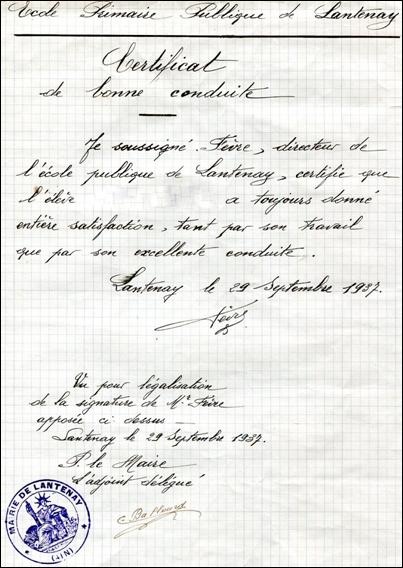 Ecole Primaire Publique de Lantenay
Certificat
de bonne conduite
Je soussigné Fèvre, directeur de
l'école publique de Lantenay, certifie que
l'élève a toujours donné
entière satisfaction, tant par son travail
que par son excellente conduite.
Lantenay le 29 Septembre 1937.
Fèvre
Vu pour légalisation
de la signature de Mr Fèvre
apposée ci dessus —
Lantenay le 29 Septembre 1937.
P. le Maire
L'adjoint délégué
MAIRIE DE LANTENAY
* (AIN) *